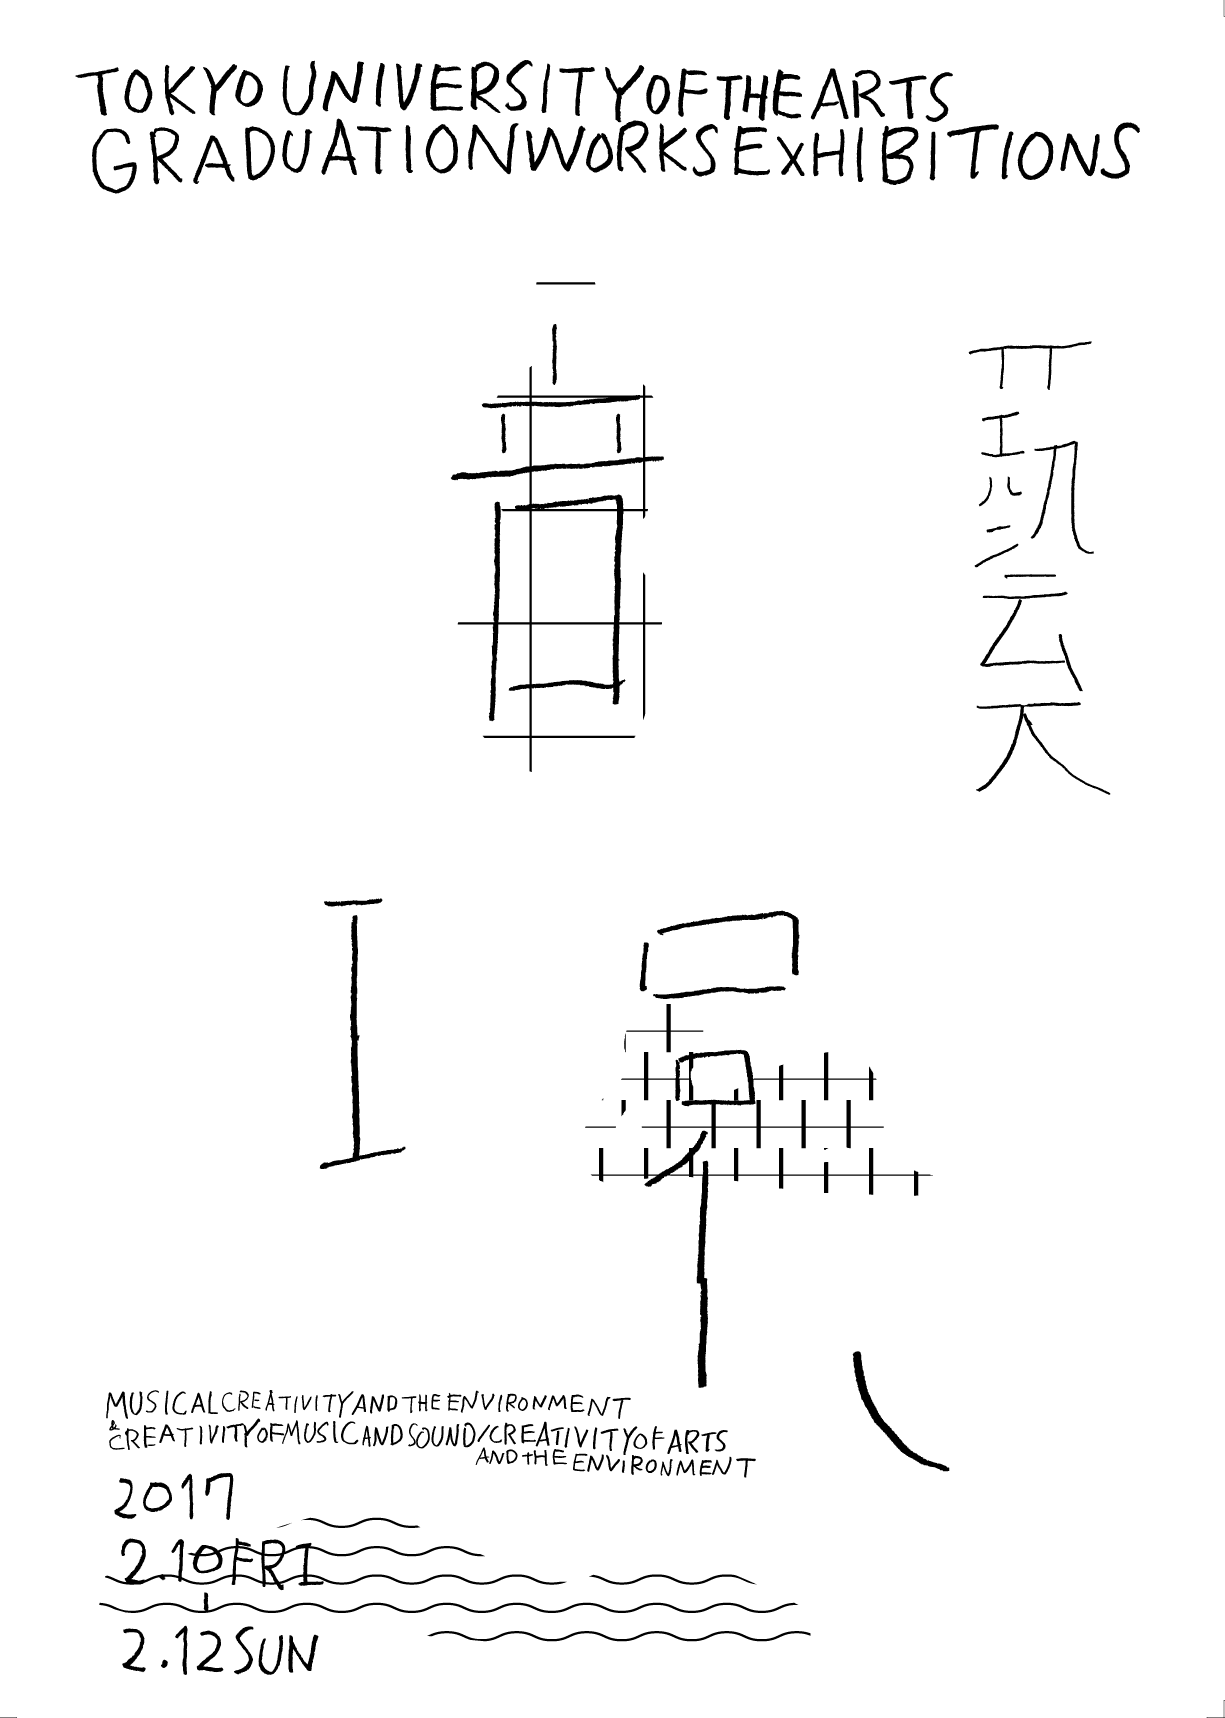 TOKYO UNIVERSITY OF THE ARTS
GRADUATION WORKS EXHIBITIONS
音
環
藝大
MUSICAL CREATIVITY AND THE ENVIRONMENT
& CREATIVITY OF MUSIC AND SOUND/CREATIVITY OF ARTS
AND THE ENVIRONMENT
2017
2.10 FRI
2.12 SUN